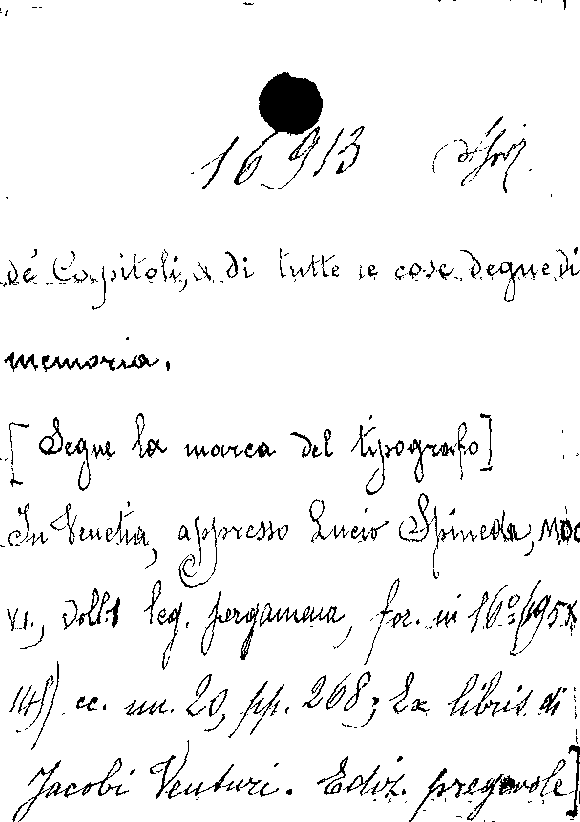 16913
de' Capitoli, & di tutte le cose degne di
memoria.
[Segue la marca del tipografo]
In Venetia, appresso Lucio Spineda, MDC
VI., leg. pergamena, for. in 16° (95x
148) cc. nn. 20, pp. 268; Ex libris di
Jacobi Venturi. Ediz. pregevole]